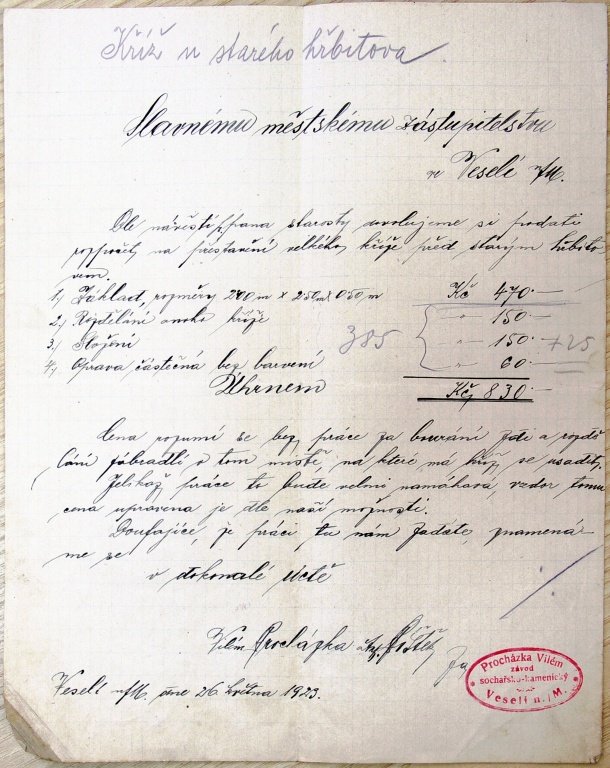 Kříž u starého hřbitova
Slavnému městskému zástupitelstvu
ve Veselí n/M.
Dle návěstí p. pana starosty uvolujeme si podati
rozpočet na přestavění velkého kříže před starým hřbito
vem.
1) Základ, rozměry 200 m x 250 m x 050 m Kč 470.—
2.) Rozdělání onoho kříže " 150.—
3.) Složení 385 " 150.— +25
4.) Oprava částečná bez barvení " 60.—
Úhrnem Kč 830.—
Cena rozumí se bez práce za bourání zdi a rozdě
lání zábradlí o tom místě, na které má kříž se usaditi.
Jelikož práce to bude velmi namáhavá, vzdor tomu
cena upravena je dle naší možnosti.
Doufajíce, že práci tu nám zadáte, znamenáme
me se
v dokonalé úctě
Vilém Procházka
Procházka Vilém
závod
sochařsko-kamenický
Veselí n./M.
Veselí n/M. dne 26 května 1923.